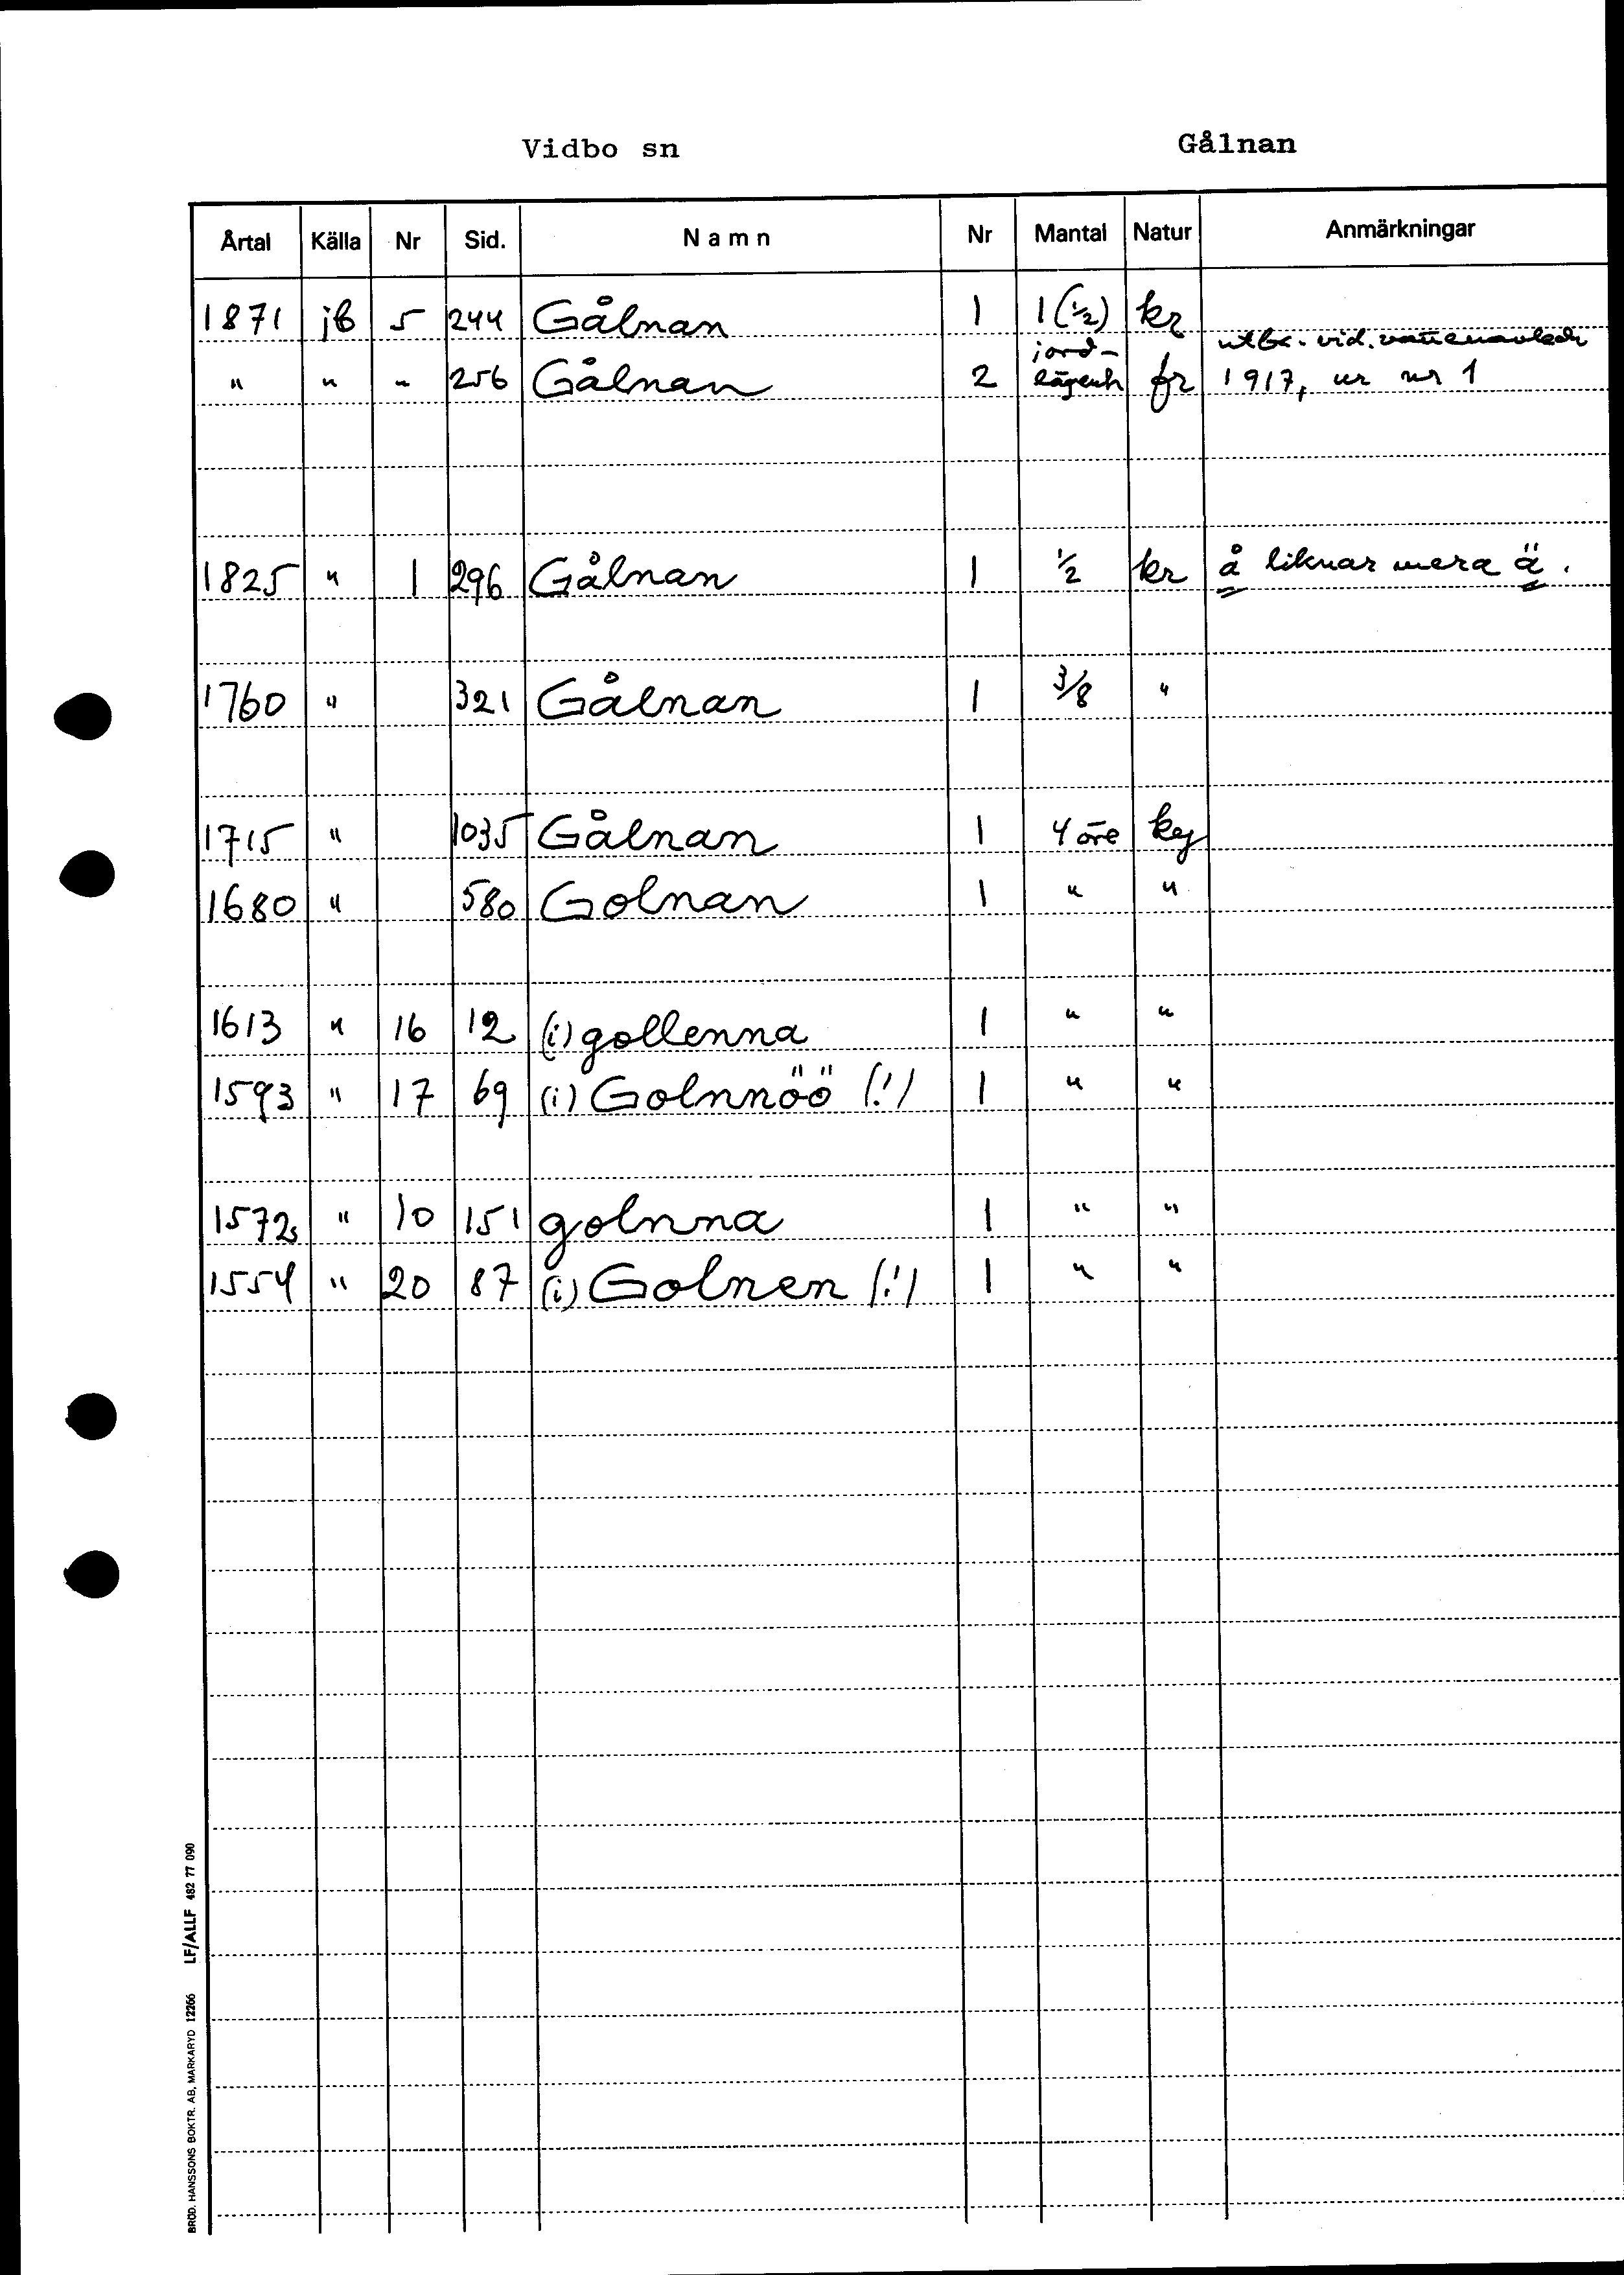 Vidbo sn Gålnan
Årtal Källa Nr Sid. Namn Nr Mantal Natur Anmärkningar
1871 jb 5 244 Gålnan 1 1 (½) kr
" " " 256 Gålnan 2 jord-lägenh fr vid. 1917, ur nr 1
1825 " 1 296 Gålnan 1 ½ kr å liknar mera ä.
1760 " 321 Gålnan 1 3/8 "
1715 " 1035 Gålnan 1 4 öre kej
1680 " 580 Golnan 1 " "
1613 " 16 12 (i) gollenna 1 " "
1593 " 17 69 (i) Golnnöö (!) 1 " "
1572 " 10 151 golnna 1 " "
1554 " 20 87 (i) Golnen (!) 1 " "
BRÖD. HANSSONS BOKTR. AB, MARKARYD 12266 LF/ALLF 462 77 090